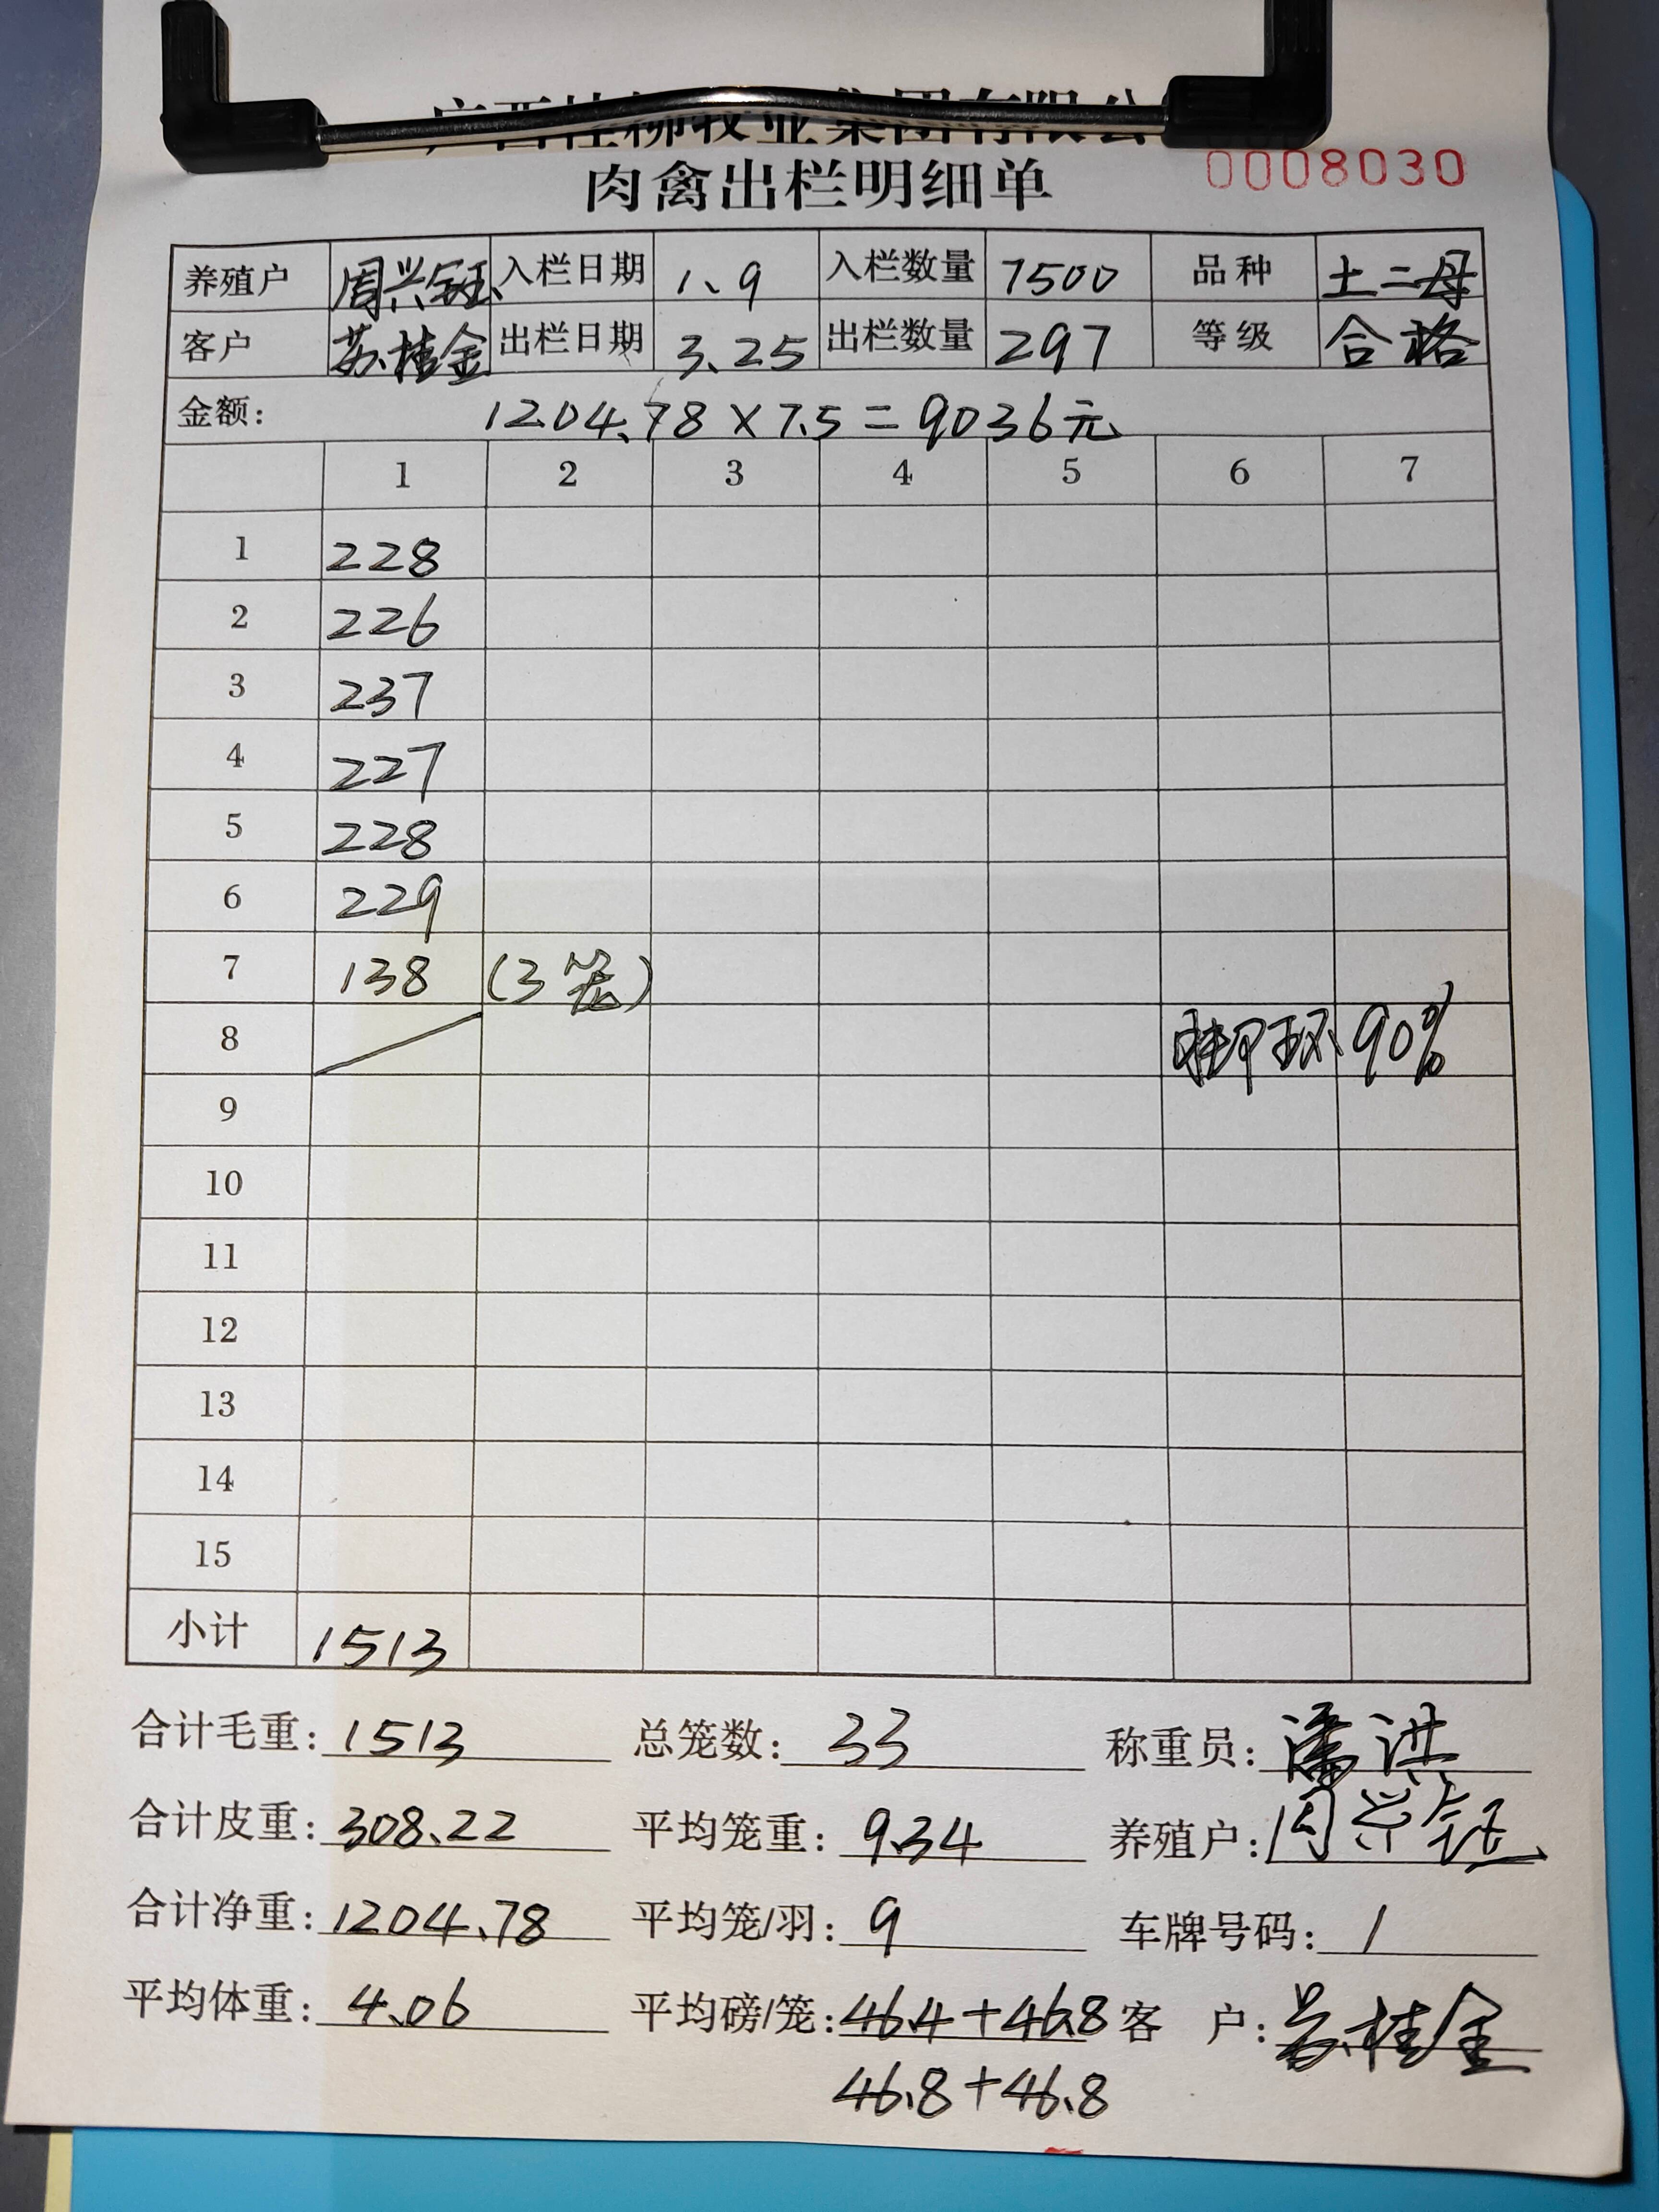 广西桂柳牧业集团有限公
肉禽出栏明细单
0008030
养殖户 周兴钰 入栏日期 1、9 入栏数量 7500 品种 土二母
客户 苏桂金 出栏日期 3、25 出栏数量 297 等级 合格
金额： 1204.78×7.5=9036元
1 2 3 4 5 6 7
1 228
2 226
3 237
4 227
5 228
6 229
7 138 (3笼)
8 90%
9
10
11
12
13
14
15
小计 1513
合计毛重：1513 总笼数：33 称重员：潘洪
合计皮重：308.22 平均笼重：9.34 养殖户：周兴钰
合计净重：1204.78 平均笼/羽：9 车牌号码：1
平均体重：4.06 平均磅/笼：46.4+46.8 客 户：苏桂金
46.8+46.8